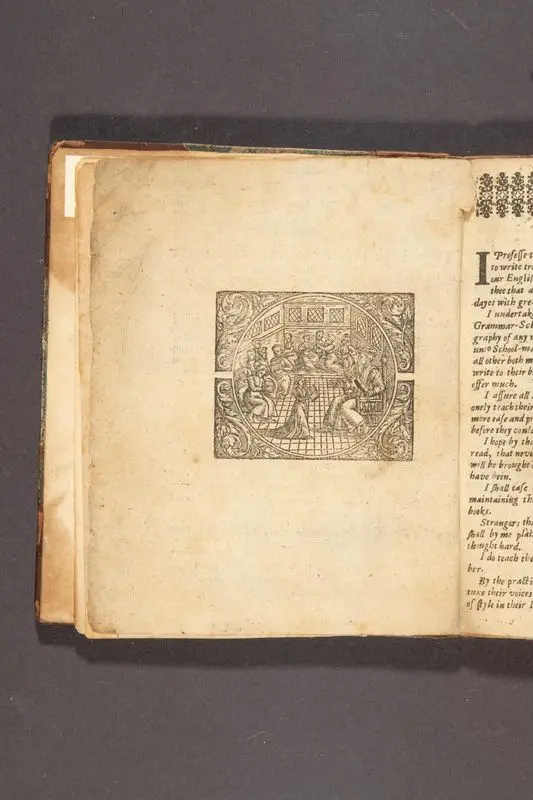 I Professe t
to write tr
our Englis
thee that a
dayes with gre
I undertak
Grammar-Sch
graphy of any
unto School-ma
all other both m
write to their b
effer much.
I assure all
onely teach their
more ease and p
before they coul
I hope by th
read, that neve
will be brought
have been.
I shall ease
maintaining th
books.
Strangers th
shall by me plai
thought hard.
I do teach the
ber.
By the practi
tune their voices
of style in their I